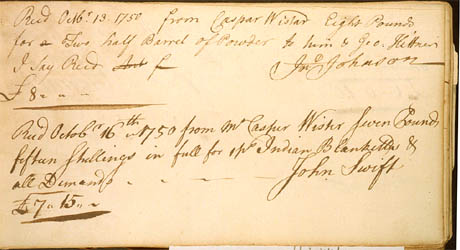 Recd Octbr. 13. 1750 from Caspar Wistar Eight Pounds
for a Two half Barrel of Powder to him & Geo.
I say Recd
Jno. Johnson
£ 8 " - "
Recd Octobr 16th 1750 from Mr Casper Wister Seven Pounds
fifteen Shellings in full for Indian Blanketts &
all Demands
John Swift
£ 7 " 15 " -